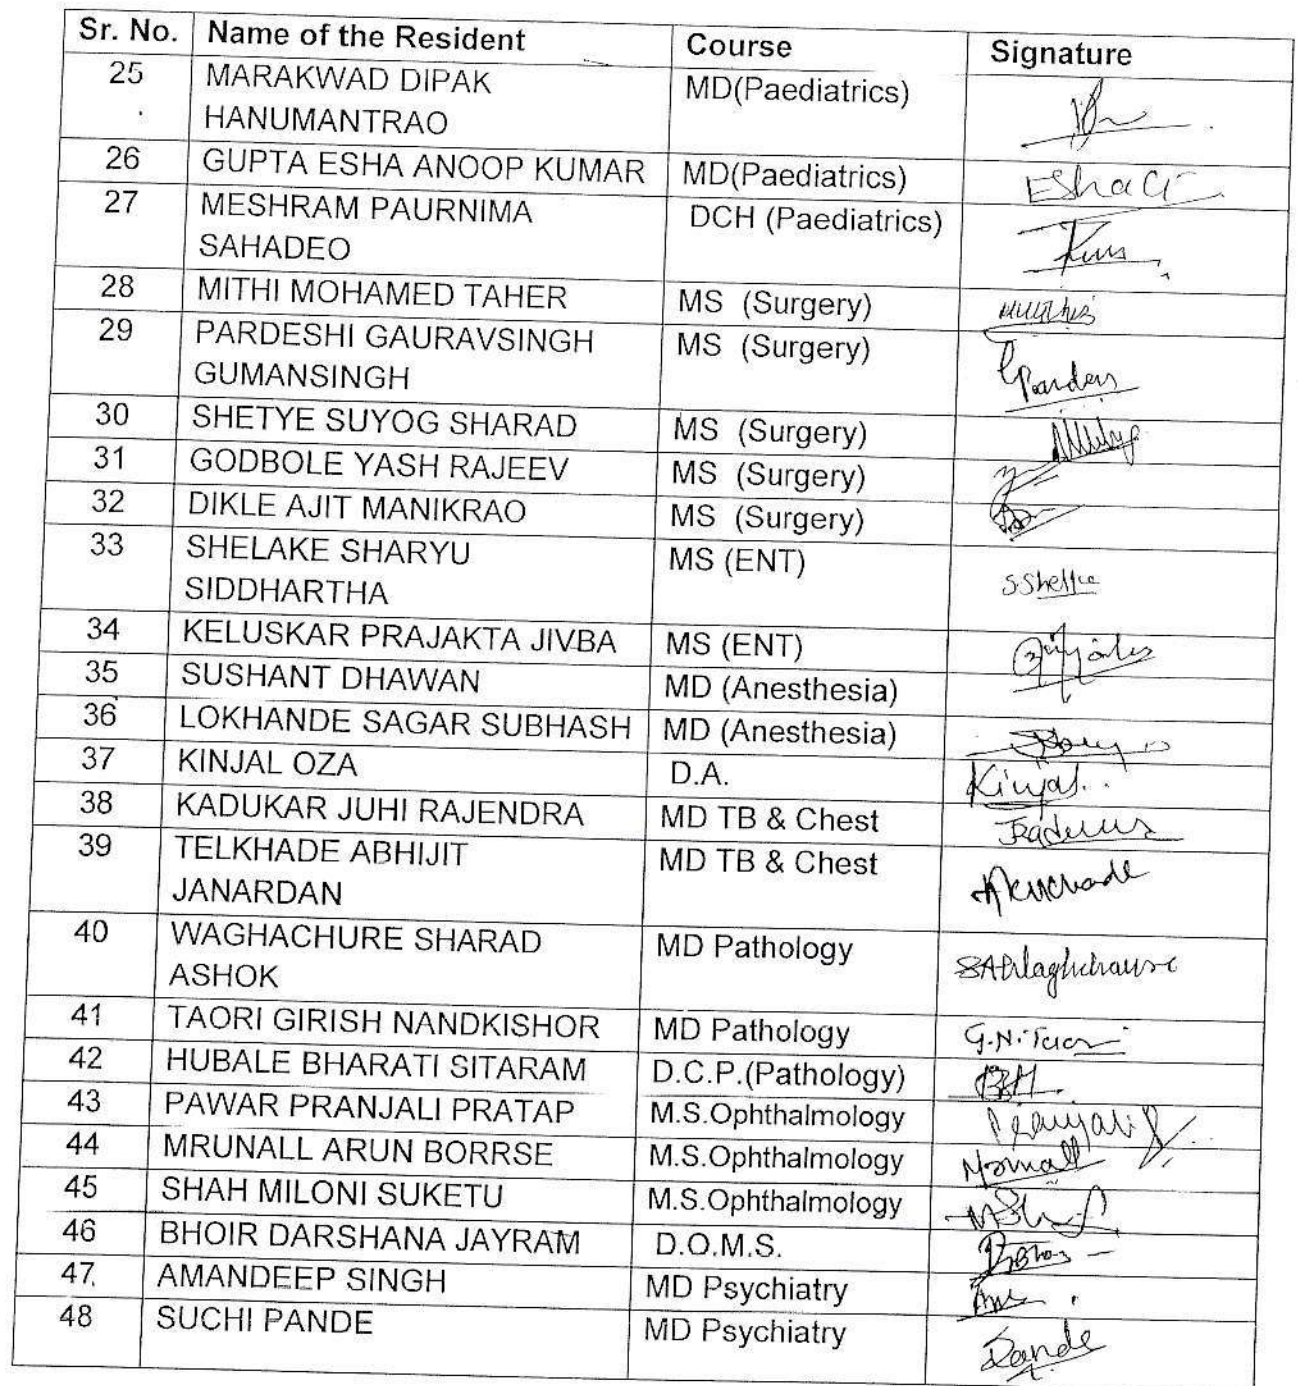 Sr. No. Name of the Resident Course Signature
25 MARAKWAD DIPAK MD(Paediatrics)
HANUMANTRAO
26 GUPTA ESHA ANOOP KUMAR MD(Paediatrics) EshaG
27 MESHRAM PAURNIMA DCH (Paediatrics)
SAHADEO
28 MITHI MOHAMED TAHER MS (Surgery)
29 PARDESHI GAURAVSINGH MS (Surgery)
GUMANSINGH
30 SHETYE SUYOG SHARAD MS (Surgery)
31 GODBOLE YASH RAJEEV MS (Surgery)
32 DIKLE AJIT MANIKRAO MS (Surgery)
33 SHELAKE SHARYU MS (ENT)
SIDDHARTHA
34 KELUSKAR PRAJAKTA JIVBA MS (ENT)
35 SUSHANT DHAWAN MD (Anesthesia)
36 LOKHANDE SAGAR SUBHASH MD (Anesthesia)
37 KINJAL OZA D.A. Kinjal
38 KADUKAR JUHI RAJENDRA MD TB & Chest
39 TELKHADE ABHIJIT MD TB & Chest
JANARDAN
40 WAGHACHURE SHARAD MD Pathology
ASHOK
41 TAORI GIRISH NANDKISHOR MD Pathology G.N.Taori
42 HUBALE BHARATI SITARAM D.C.P.(Pathology)
43 PAWAR PRANJALI PRATAP M.S.Ophthalmology
44 MRUNALL ARUN BORRSE M.S.Ophthalmology
45 SHAH MILONI SUKETU M.S.Ophthalmology
46 BHOIR DARSHANA JAYRAM D.O.M.S.
47 AMANDEEP SINGH MD Psychiatry
48 SUCHI PANDE MD Psychiatry Pande